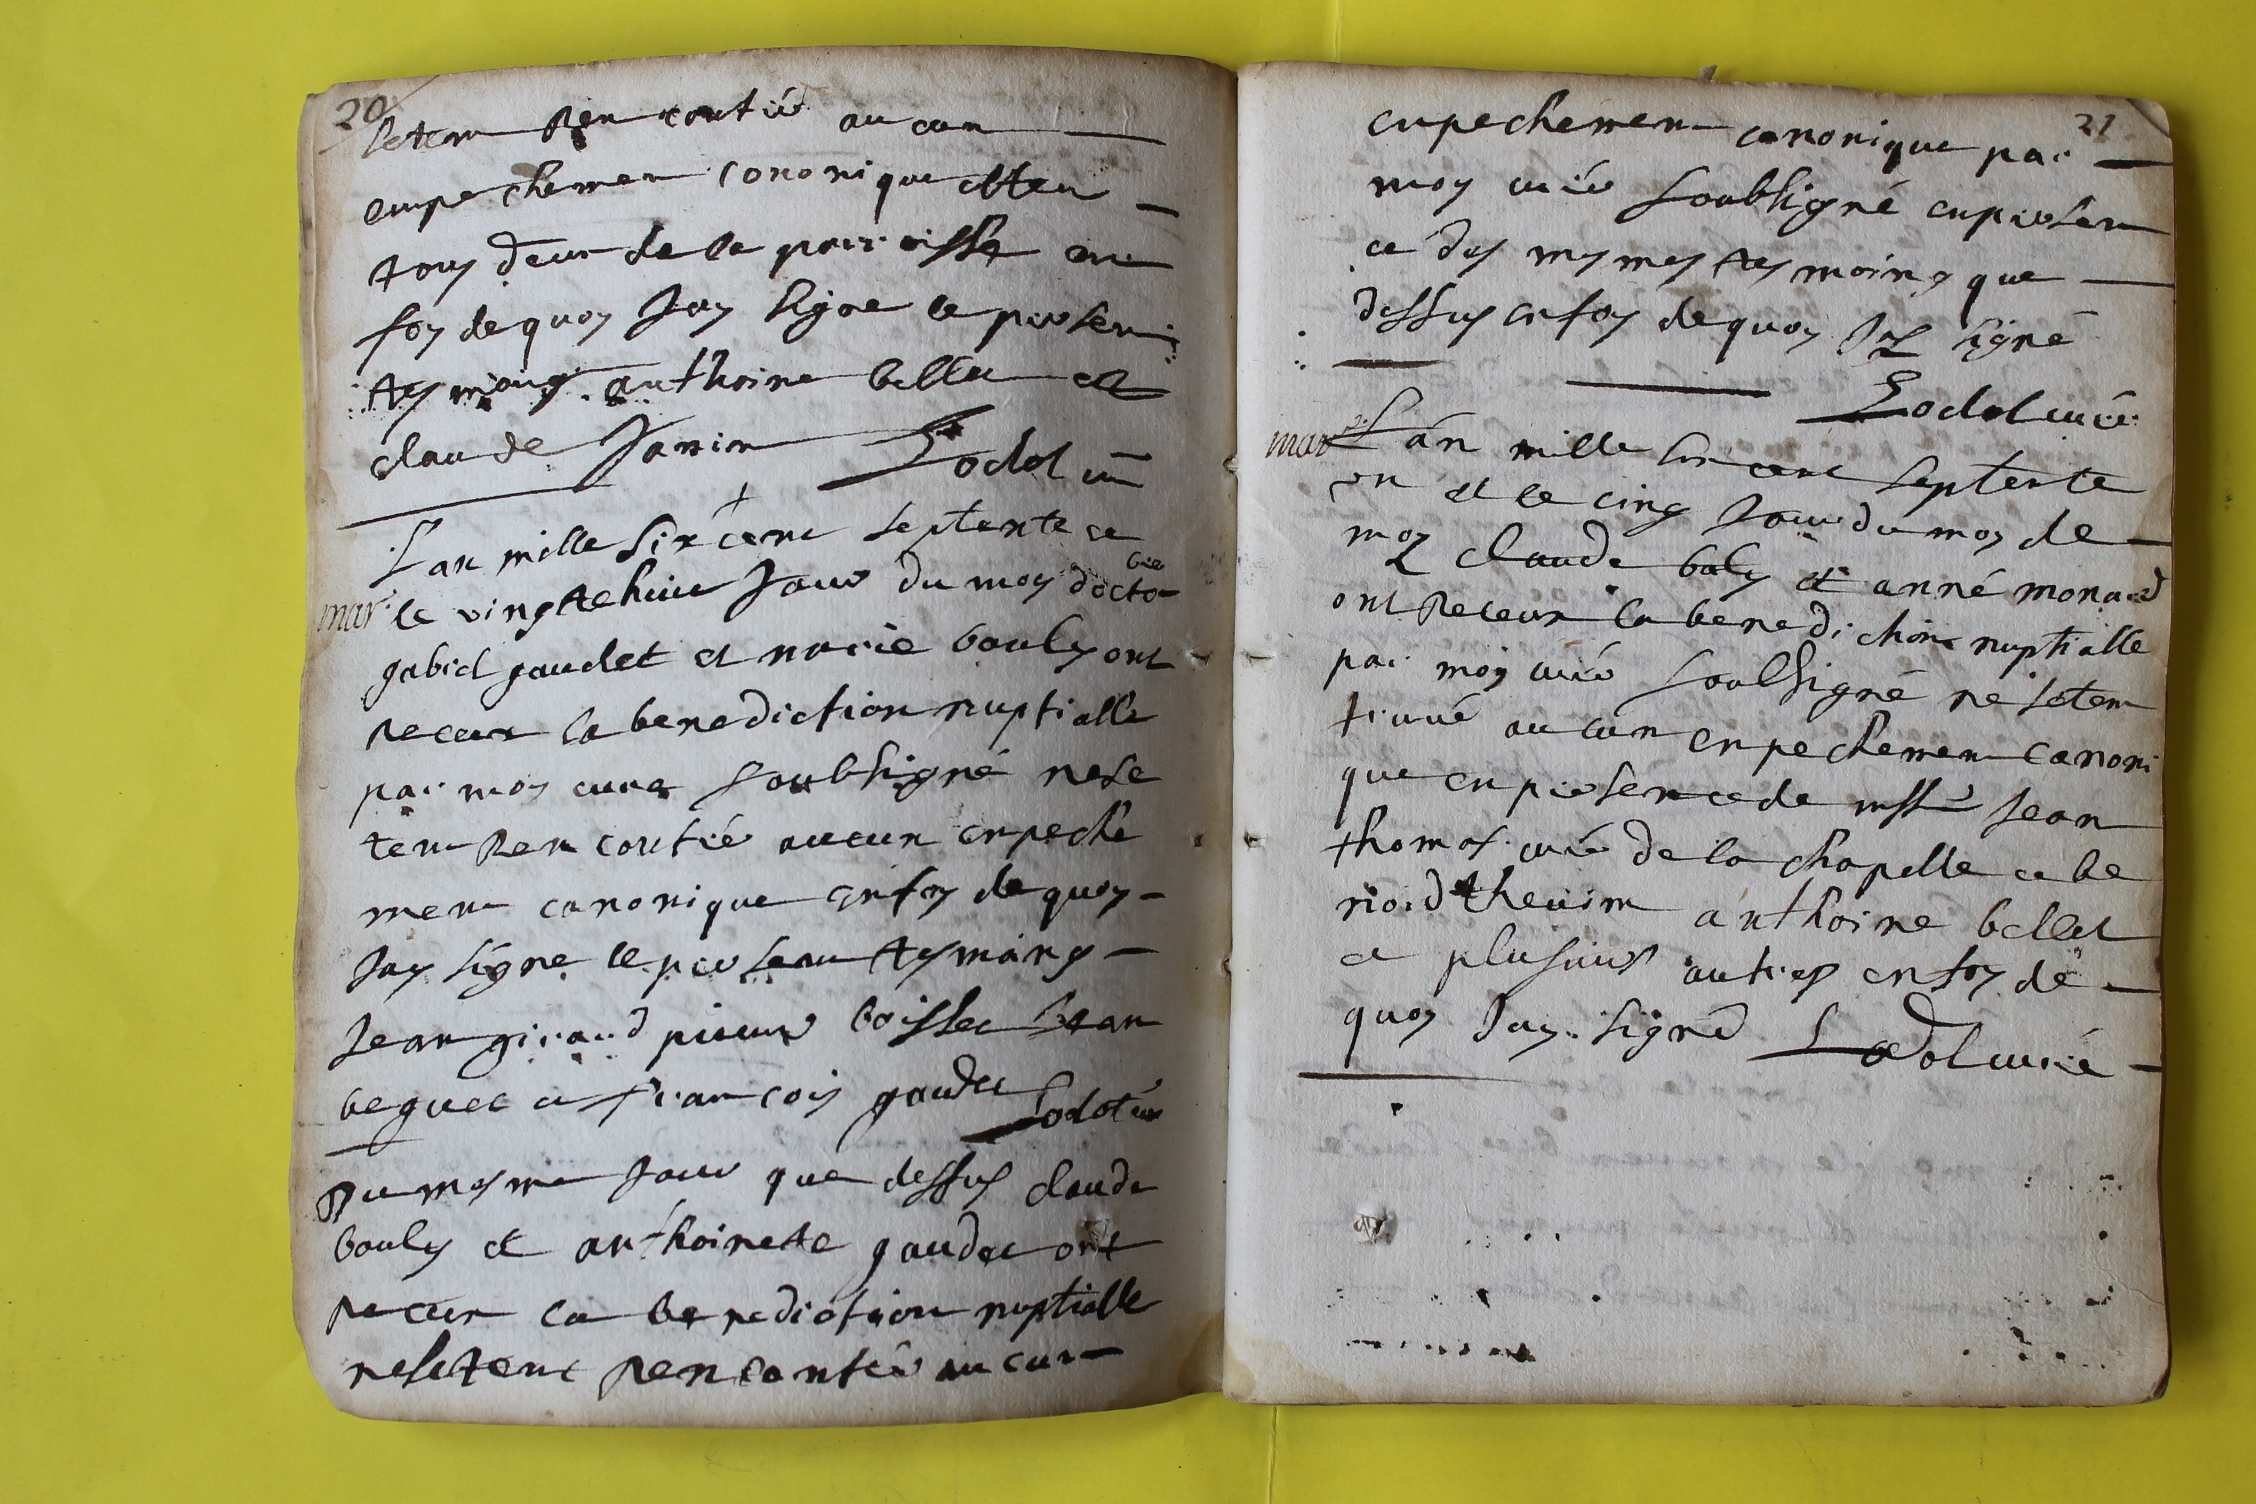 20
setem Rencontré aucun
empechemen canonique esten
tous deux de la parroisse en
foy de quoy Jay signe le presen
tesmoing anthoine bellet et
claude Janin Lodol curé
L an mille six cent septente ce
mar. le vingtehuict Jour du moy docto-bre
gabriel gaudet et marie bouly ont
receux la benediction nuptialle
par moy cure soubsigné nese
tem Rencontré aucun enpeche
men canonique en foy de quoy
Jay signe le presean tesmoing
Jean giraud pierre boisset Jean
beguet et francois gaudet Lodol curé
Du mesme Jour que dessus claude
bouly et anthoinette gaudet ont
receux la benediction nuptialle
nesetent Rencontré aucun
21
enpechemen canonique par
moy curé soubsigné enpresen
ce des mesmes tesmoing que
dessus en foy de quoy Jay signé
Lodol curé
mar L'an mille six cent septente
vn et le cinq Jour du moy de
may claude boly et anné monard
ont Receux la benediction nuptialle
par moy curé soubsigné ne setem
truué aucun enpechemen canoni
que en presence de mssre Jean
thomas curé de la chapelle et be
noid theuim anthoine bellet
et plusieurs autres en foy de
quoy Jay signé Lodol curé